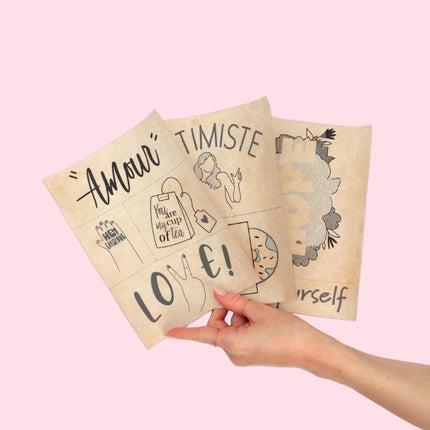 "Amour"
You are
my cup
of tea
LOVE!
TIMISTE
urself